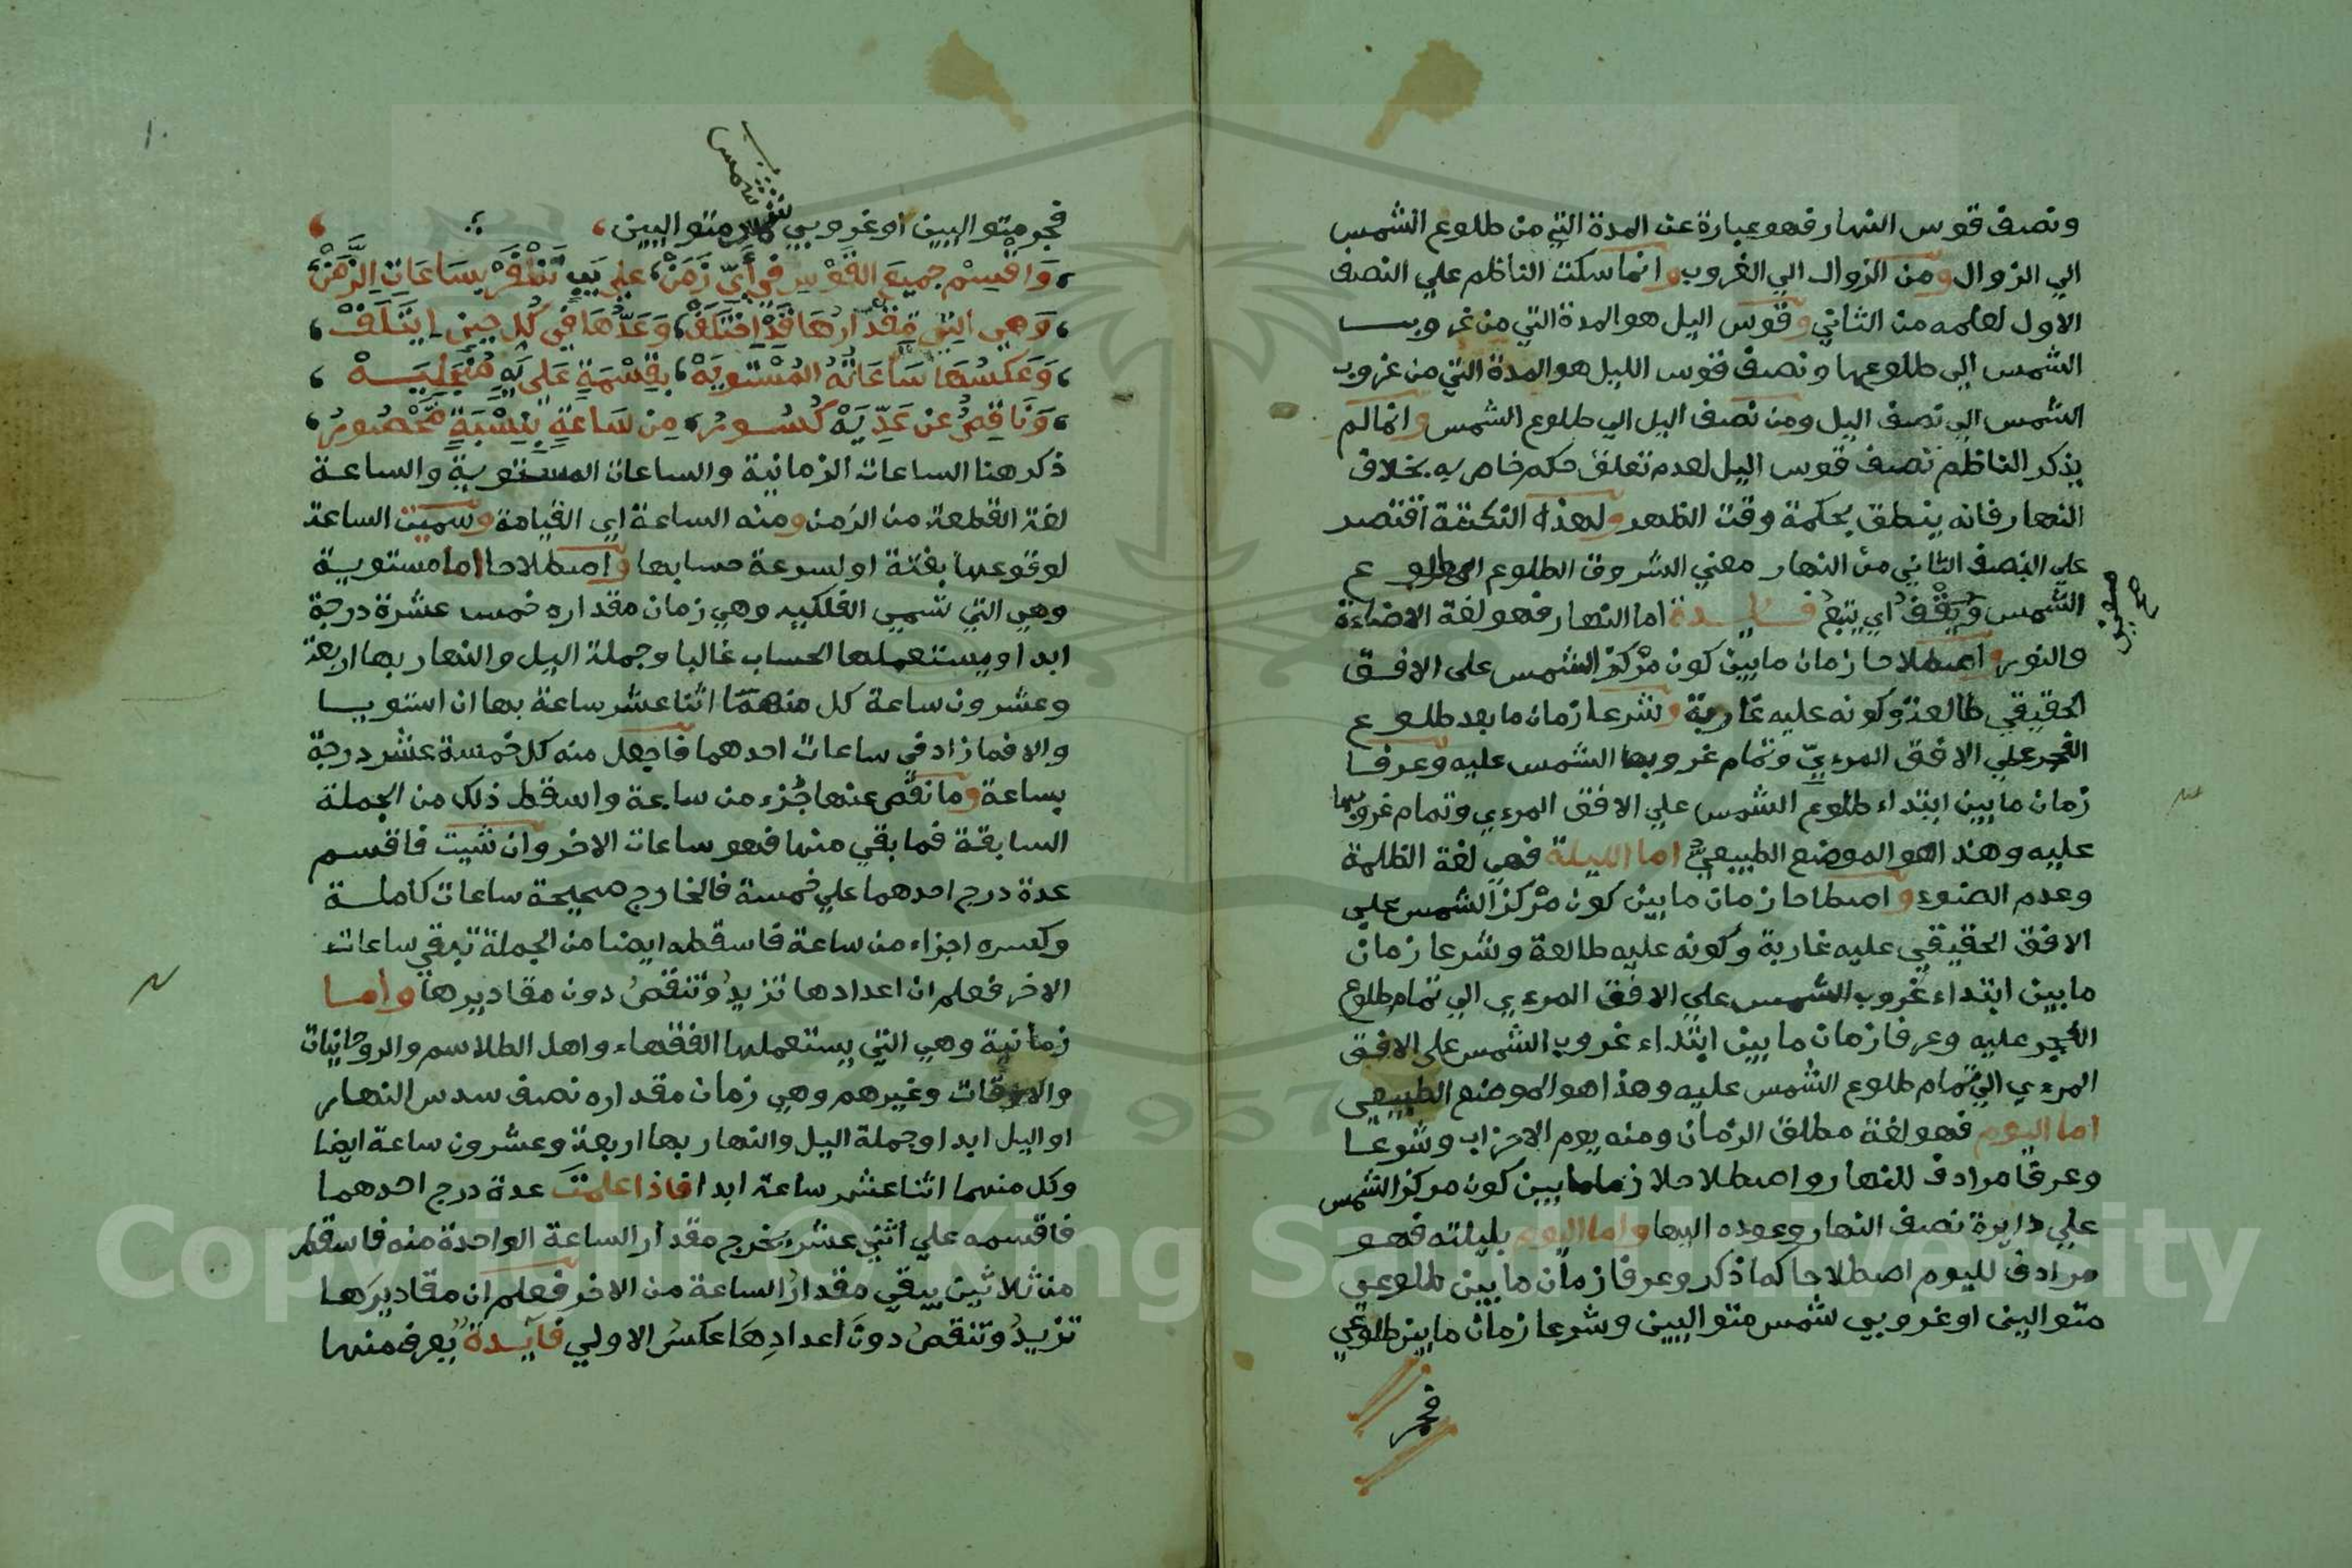 ونصف قوس النهار فهو عبارة عن المدة التي من طلوع الشمس
الي الزوال ومن الزوال الي الغروب وانما سكت الناظم علي النصف
الاول لعلمه من الثاني وقوس اليل هو المدة التي من غروب
الشمس الي طلوعها ونصف قوس الليل هو المدة التي من غروب
الشمس الي نصف اليل ومن نصف اليل الي طلوع الشمس وانما لم
يذكر الناظم نصف قوس اليل لعدم تعلق حكم خاص به بخلاف
النهار فانه ينطق بحكمة وقت الظهر ولهذه النكتة اقتصر
علي النصف الثاني من النهار معني الشروق الطلوع اي طلوع
الشمس ويقف اي يتبع فايدة اما النهار فهو لغة الاضاءة
والنور واصطلاحا زمان ما بين كون مركز الشمس علي الافق
الحقيقي طالعة وكونه عليه غاربة وشرعا زمان ما بعد طلوع
الفجر علي الافق المرءي وتمام غروبها الشمس عليه وعرفا
زمان ما بين ابتداء طلوع الشمس علي الافق المرءي وتمام غروبها
عليه وهذا هو الموضع الطبيعي اما الليلة فهي لغة الظلمة
وعدم الضوء واصطلاحا زمان ما بين كون مركز الشمس علي
الافق الحقيقي عليه غاربة وكونه عليه طالعة وشرعا زمان
ما بين ابتداء غروب الشمس علي الافق المرءي الي تمام طلوع
الفجر عليه وعرفا زمان ما بين ابتداء غروب الشمس علي الافق
المرءي الي تمام طلوع الشمس عليه وهذا هو الموضع الطبيعي
اما اليوم فهو لغة مطلق الزمان ومنه يوم الاحزاب وشرعا
وعرفا مرادف للنهار واصطلاحا زمان ما بين كون مركز الشمس
علي دايرة نصف النهار وعوده اليها واما اليوم بليلته فهو
مرادف لليوم اصطلاحا كما ذكر وعرفا زمان ما بين طلوعي
متوالين او غروبي شمس متواليين وشرعا زمان ما بين طلوعي
فجر
شمس
فجر متواليين او غروبي متواليين
واقسم جميع القوس في أي زمن علي يب تظفر بساعات الزمن
وهي التي مقدارها قد اختلف وعدها في كل حين ايتلف
وعكسها ساعاته المستويه بقسمة علي يه منجليه
وناقص عن عد يه كسور من ساعة بنسبة محصور
ذكر هنا الساعات الزمانية والساعات المستوية والساعة
لغة القطعة من الزمن ومنه الساعة اي القيامة وسميت الساعة
لوقوعها بغتة او لسرعة حسابها واصطلاحا اما مستوية
وهي التي تسمي الفلكيه وهي زمان مقداره خمس عشرة درجة
ابدا ويستعملها الحساب غالبا وجملة اليل والنهار بها اربعة
وعشرون ساعة كل منهما اثنا عشر ساعة بها ان استويا
والا فما زاد في ساعات احدهما فاجعل منه كل خمسة عشر درجة
بساعة وما نقص عنها جزء من ساعة واسقط ذلك من الجملة
السابقة فما بقي منها فهو ساعات الاخر وان شيت فاقسم
عدة درج احدهما علي خمسة فالخارج صحيحة ساعات كاملة
وكسره اجزاء من ساعة فاسقطه ايضا من الجملة تبقي ساعات
الاخر فعلم ان اعدادها تزيد وتنقص دون مقاديرها واما
زمانية وهي التي يستعملها الفقهاء واهل الطلاسم والروحانيات
والاوفاق وغيرهم وهي زمان مقداره نصف سدس النهار
او اليل ابدا وجملة اليل والنهار بها اربعة وعشرون ساعة ايضا
وكل منهما اثنا عشر ساعة ابدا فاذا علمت عدة درج احدهما
فاقسمه علي اثني عشر يخرج مقدار الساعة الواحدة منه فاسقطه
من ثلاثين يبقي مقدار الساعة من الاخر فعلم ان مقاديرها
تزيد وتنقص دون اعدادها عكس الاولي فايدة يعرف منها
Copyright © King Saud University
1957